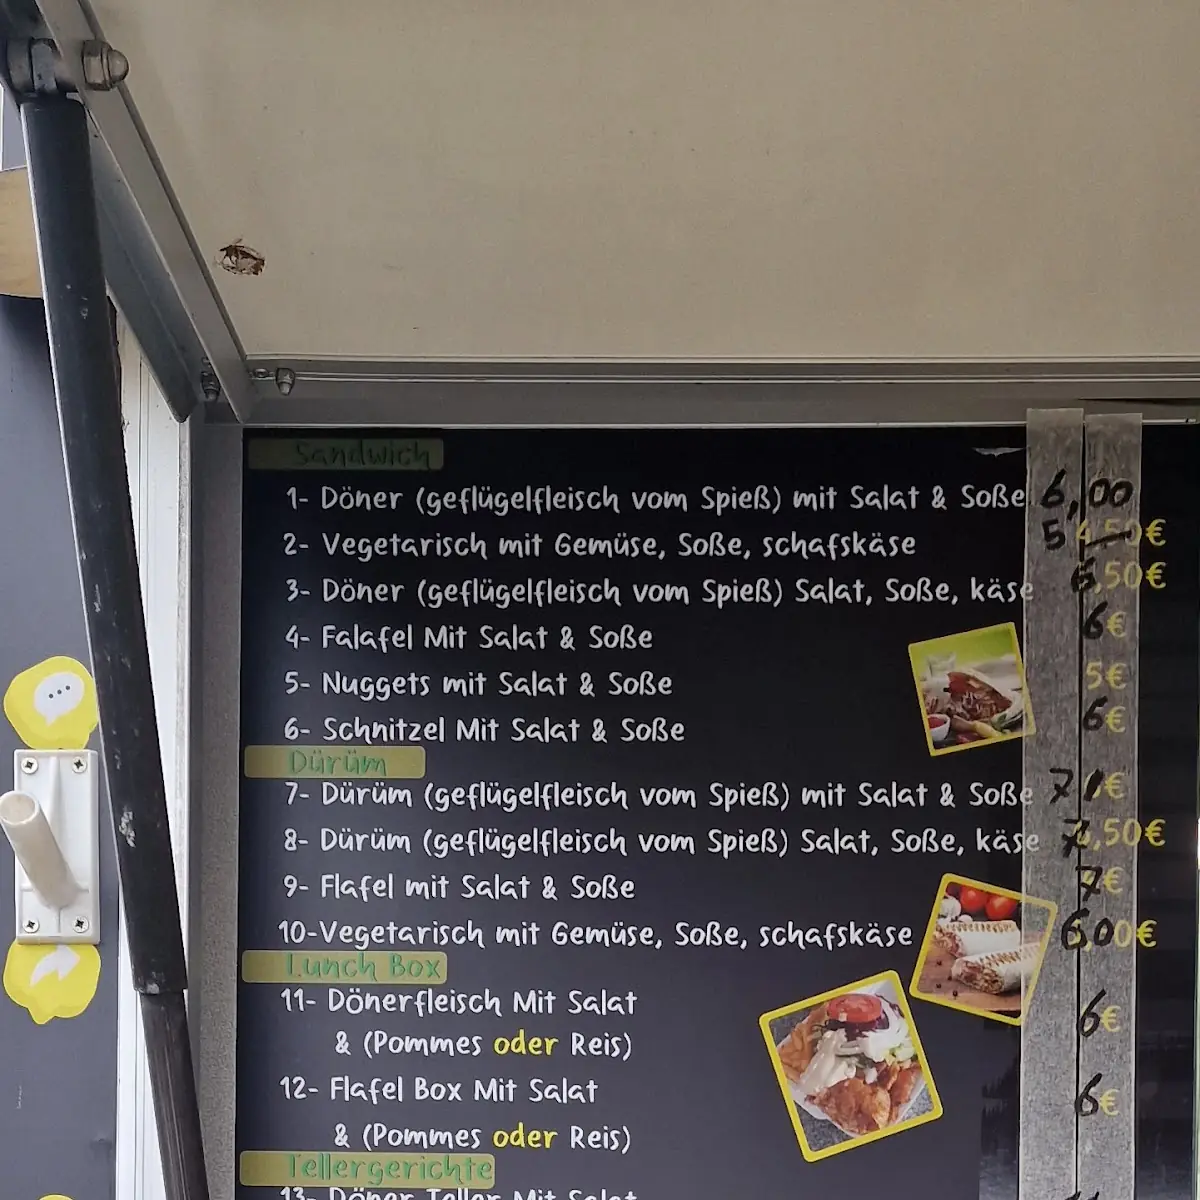 Sandwich
1- Döner (geflügelfleisch vom Spieß) mit Salat & Soße 6,00
2- Vegetarisch mit Gemüse, Soße, schafskäse 5 4,50€
3- Döner (geflügelfleisch vom Spieß) Salat, Soße, käse 6,50€
4- Falafel Mit Salat & Soße 6€
5- Nuggets mit Salat & Soße 5€
6- Schnitzel Mit Salat & Soße 6€
Dürüm
7- Dürüm (geflügelfleisch vom Spieß) mit Salat & Soße 7 €
8- Dürüm (geflügelfleisch vom Spieß) Salat, Soße, käse 7,50€
9- Flafel mit Salat & Soße 7€
10-Vegetarisch mit Gemüse, Soße, schafskäse 6,00€
Lunch Box
11- Dönerfleisch Mit Salat
& (Pommes oder Reis) 6€
12- Flafel Box Mit Salat 6€
& (Pommes oder Reis)
Tellergerichte
13- Döner Teller Mit Salat